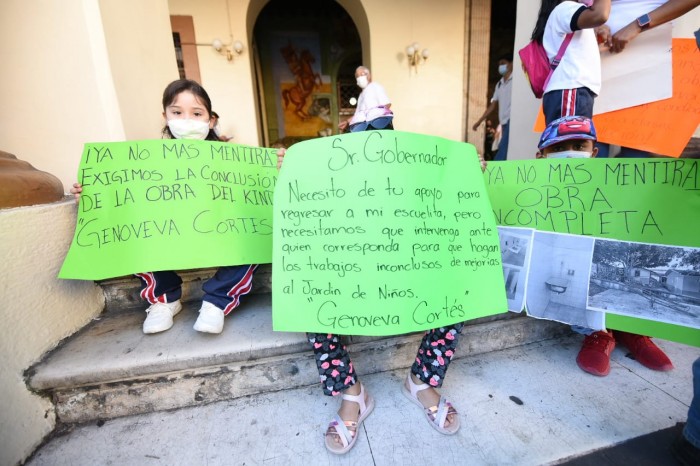 ¡YA NO MAS MENTIRA
EXIGIMOS LA CONCLUSIÓN
DE LA OBRA DEL KIND
"GENOVEVA CORTES"
Sr. Gobernador
Necesito de tu apoyo para
regresar a mi escuelita, pero
necesitamos que intervenga ante
quien corresponda para que hagan
los trabajos inconclusos de mejoras
al Jardín de Niños.
"Genoveva Cortés"
YA NO MAS MENTIRA
OBRA
INCOMPLETA